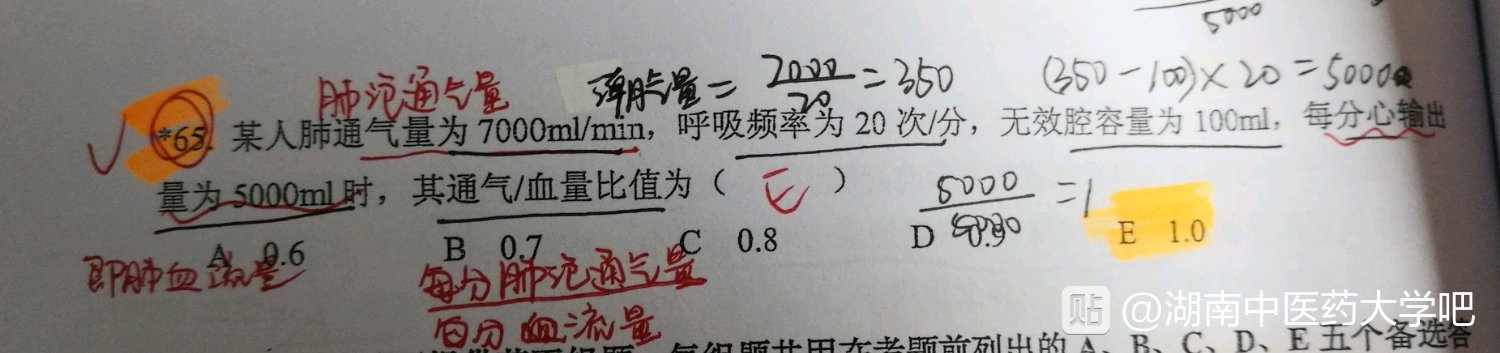 5000
肺泡通气量 潮气量=7000/20=350 (350-100)×20=5000
*65. 某人肺通气量为 7000ml/min，呼吸频率为 20 次/分，无效腔容量为 100ml，每分心输出
量为 5000ml 时，其通气/血量比值为（ E ） 5000/5000=1
A 0.6 B 0.7 C 0.8 D 0.90 E 1.0
即肺血流量 每分肺泡通气量
每分血流量
贴 @湖南中医药大学吧
每组题共用在考题前列出的 A、B、C、D、E 五个备选答